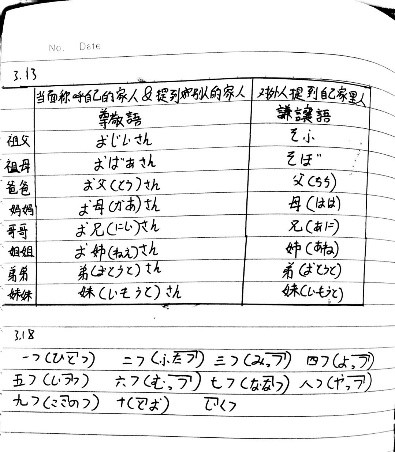 No. Date
3.13
当面称呼自己的家人 & 提到别人的家人 对外人提到自己家里人
尊敬語 謙譲語
祖父 おじいさん そふ
祖母 おばあさん そぼ
爸爸 お父(とう)さん 父(ちち)
妈妈 お母(かあ)さん 母(はは)
哥哥 お兄(にい)さん 兄(あに)
姐姐 お姉(ねえ)さん 姉(あね)
弟弟 弟(おとうと)さん 弟(おとうと)
妹妹 妹(いもうと)さん 妹(いもうと)
3.18
一つ(ひとつ) 二つ(ふたつ) 三つ(みっつ) 四つ(よっつ)
五つ(いつつ) 六つ(むっつ) 七つ(ななつ) 八つ(やっつ)
九つ(ここのつ) 十(とお) いくつ